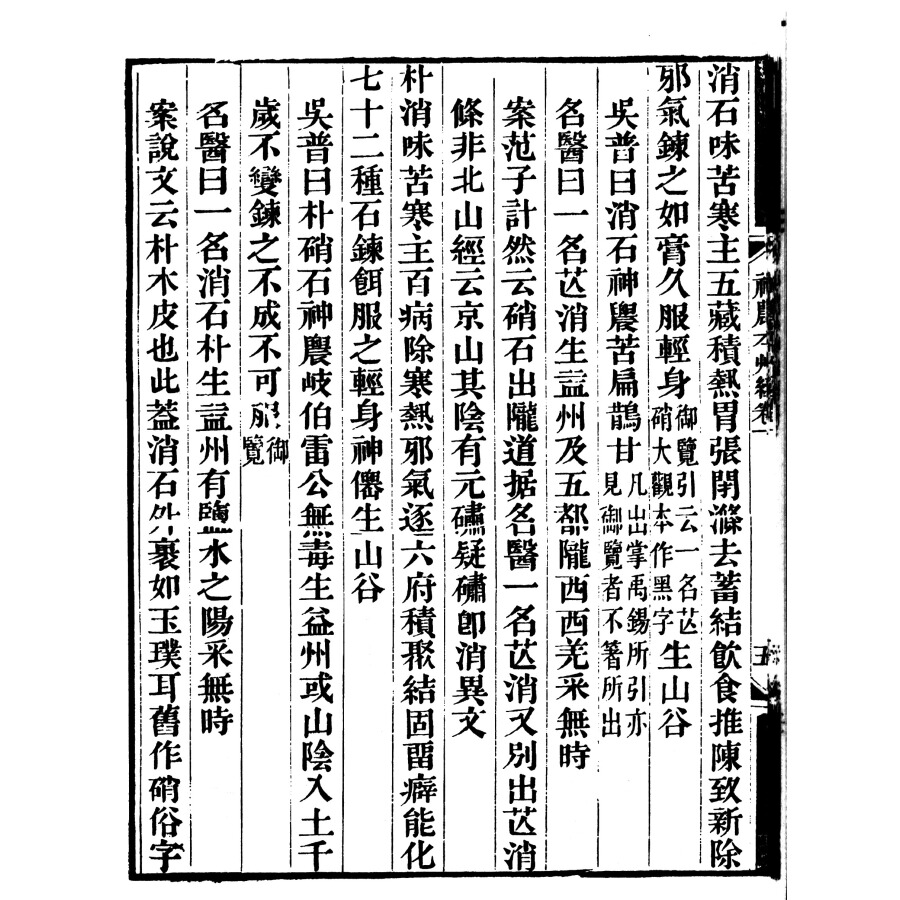 消石味苦寒主五藏積熱胃張閉滌去蓄結飲食推陳致新除
邪氣鍊之如膏久服輕身御覽引云一名芒硝大觀本作黑字生山谷
吳普曰消石神農苦扁鵲甘凡出掌禹錫所引亦見御覽者不箸所出
名醫曰一名芒消生益州及五都隴西西羌采無時
案范子計然云硝石出隴道据名醫一名芒消又別出芒消
條非北山經云京山其陰有元礵疑礵卽消異文
朴消味苦寒主百病除寒熱邪氣逐六府積聚結固畱癖能化
七十二種石鍊餌服之輕身神僊生山谷
吳普曰朴硝石神農岐伯雷公無毒生益州或山陰入土千
歲不變鍊之不成不可服御覽
名醫曰一名消石朴生益州有鹽水之陽采無時
案說文云朴木皮也此蓋消石外裹如玉璞耳舊作硝俗字
神農本艸經卷一
五